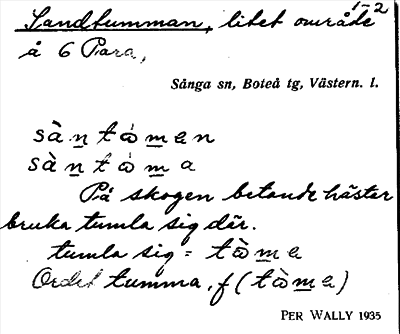 1-2
Sandtumman, litet område
å 6 Para,
Sånga sn, Boteå tg, Västern. l.
sàn̲tȯ̀m̲an
sàn̲tȯ̀m̲a
På skogen betande hästar
bruka tumla sig där.
tumla sig = tȯ̀m̲a
Ordet tumma, f (tȯ̀m̲a)
PER WALLY 1935